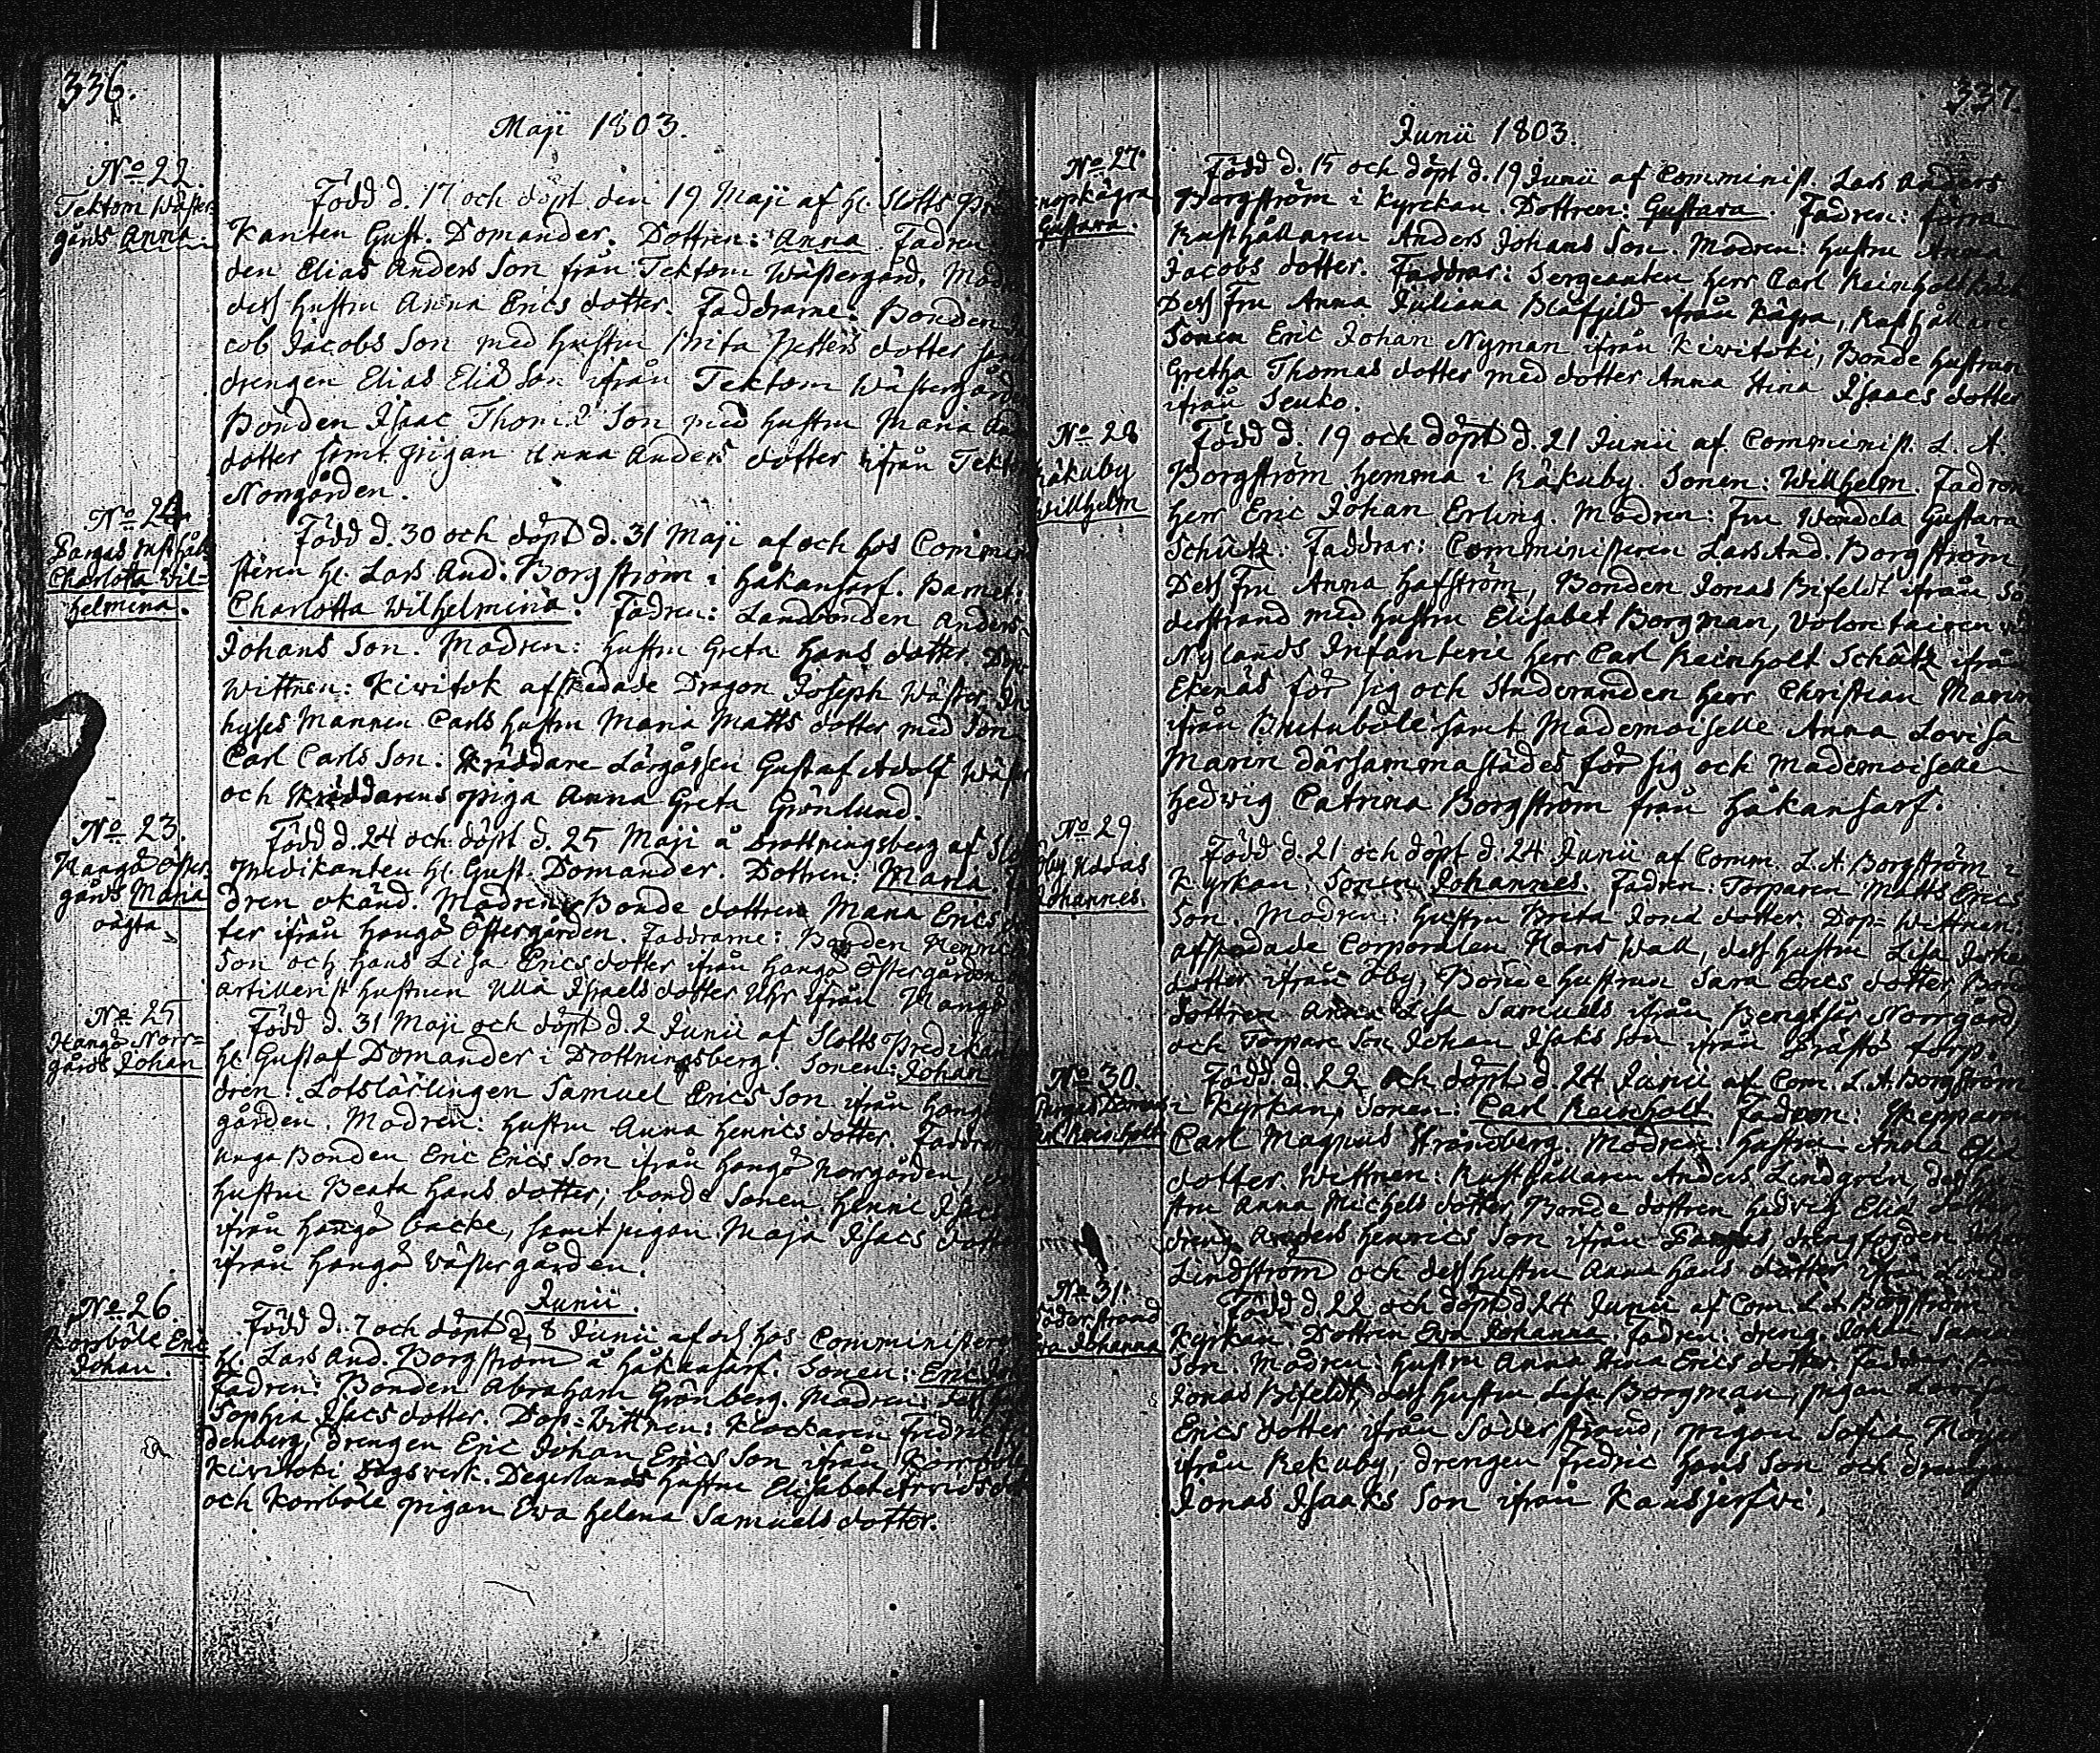 336.
Maji 1803.
No 22.
Tektom Wäster-
gårds Anna
Född d. 17 och döpt den 19 Maji af H. Slotts Pre
Kanten Gust. Domander. Dottren: Anna Fadren
den Elias Anders Son från Tektom Wästergård. Mod
dess hustru Anna Erics dotter. Faddrarne: Bonden
cob Jacobs Son med hustru Brita Petters dotter samt
drengen Elias Elias Son ifrån Tektom Wästergård
Bonden Isaac Thomas Son med hustru Maria An
dotter samt pigan Anna Anders dotter ifrån Tekt
Norrgården.
No 24.
Charlotta Wil-
helmina.
Född d. 30 och döpt d. 31 Maji af och hos Commini
steren H. Lars And. Borgström i Håkansarf. Barnet:
Charlotta Wilhelmina. Fadren: Landbonden Anders
Johans Son. Modren: hustru Greta Hans dotter. Dop-
Wittnen: Kiwitok afskedade Dragon Joseph Wäster, In
hyses Mannen Carls hustru Maria Matts dotter med Son
Carl Carls Son. Skräddare Lärgåssen Gustaf Adolf Wäst
och Skräddarens piga Anna Greta Grönlund.
No 23.
Hangö Öster-
gårds Maria
oägta
Född d. 24 och döpt d. 25 Maji å Drottningsberg af Slo
Predikanten H. Gust. Domander. Dottren: Maria.
dren okänd. Modren: Bonde dottren Maria Erics
ter ifrån Hangö Östergården. Faddrarne: Bonden Henric
Son och hans Lisa Ericsdotter ifrån Hangö Östergården
artillerist hustrun Ulla Israels dotter Uhr ifrån Hangö
No 25
Hangö Norr-
gårds Johan
Född d. 31 Maji och döpt d. 2 Junii af Slotts Predikant
H. Gustaf Domander i Drottningsberg. Sonen: Johan
dren: Lotslärlingen Samuel Erics Son ifrån Hangö
gården. Modren: hustru Anna Henrics dotter. Faddrar
unga Bonden Eric Erics Son ifrån Hangö Norrgården,
hustru Beata Hans dotter; bonde Sonen Henric Isacs
ifrån Hangö backe, samt pigan Maja Isacs dotter
ifrån Hangö Wästergården.
Junii.
No 26.
Korsböle Eric
Johan.
Född d. 7 och döpt d. 8 Junii af och hos Comministern
H. Lars And. Borgström å Håkansarf. Sonen: Eric
Fadren: Bonden Abraham Grönberg. Modren: dess
Sophia Isacs dotter. Dop-Wittnen: Klockaren Fredric
denberg, drengen Eric Johan Erics Son ifrån Korsböle
Kiwitoki Degerlands hustru Elisabet Arvids dot
och Korsböle pigan Ewa Helena Samuels dotter.
337
Junii 1803.
No 27.
Gustava.
Född d. 15 och döpt d. 19 Junii af Comminist. Lars Anders
Borgström i Kyrckan. Dottren: Gustava. Fadren: förra
Rusthållaren Anders Johans Son. Modren: hustru Anna
Jacobs dotter. Faddrar: Sergeanten Herr Carl Reinholt
Dess Fru Anna Juliana Blåfjeld ifrån Kägra, Rusthållare
Sonen Eric Johan Nyman ifrån Kiwitoki, Bonde hustrun
Gretha Thomas dotter med dotter Anna Stina Isaacs dotter
ifrån Seuko.
No 28
Råkuby
Willhelm
Född d. 19 och döpt d. 21 Junii af Comminist. L. A.
Borgström hemma i Råkuby. Sonen: Willhelm Fadren
Herr Eric Johan Erling. Modren: Fru Wendla Gustava
Schütz. Faddrar: Comministeren Lars And. Borgström,
Dess Fru Anna Hafström, Bonden Jonas Bifeldt ifrån Sö
derstrand med hustru Elisabet Borgman, Volontairen vid
Nylands Infanterie Herr Carl Reinholt Schütz ifrån
Ekenäs för sig och Studeranden Herr Christian Marin
ifrån Brutuböle samt Mademoiselle Anna Lovisa
Marin därsammastädes för sig och Mademoiselle
Hedwig Catrina Borgström från Håkansarf.
No 29
Johannes.
Född d. 21 och döpt d. 24 Junii af Comm. L. A. Borgström i
Kyrkan. Sonen Johannes. Fadren: Torparen Matts Erics
Son. Modren: hustru Brita Jona dotter. Dop-Wittnen:
afskedade Corporalen Hans Wall, dess hustru Lisa Johan
dotter ifrån Öby, Bonde hustrun Sara Erics dotter, Bonde
dottren Anna Lisa Samuels ifrån Bengtsår Norrgård
och Torpare Son Johan Isaks Son ifrån Präste torp.
No 30.
Född d. 22 och döpt d. 24 Junii af Com. L. A. Borgström
i Kyrkan. Sonen: Carl Reinholt. Fadren: Skepparen
Carl Magnus Strandberg. Modren: hustru Anna Elia
dotter. Wittnen: Rusthållaren Anders Lindgren, dess hu
stru Anna Michels dotter, Bonde dottren Hedvig Elia dotter
dreng Anders Henrics Son ifrån drengfogden Johan
Lindström och dess hustru Anna Hans dotter
No 31.
Söderstrand
Eva Johanna
Född d. 22 och döpt d. 24 Junii af Com. L. A. Borgström i
Kyrkan Dottren Eva Johanna. Fadren: dreng. Johan Samuel
Son. Modren: hustru Anna Stina Erics dotter. Faddrar:
Jonas Bifeldt, dess hustru Lisa Borgman, pigan Lovisa
Erics dotter ifrån Söderstrand, pigan Sofia
ifrån Rekuby, drengen Fredric Hans Son och drengen
Jonas Isaaks Son ifrån Kansjerfvi,